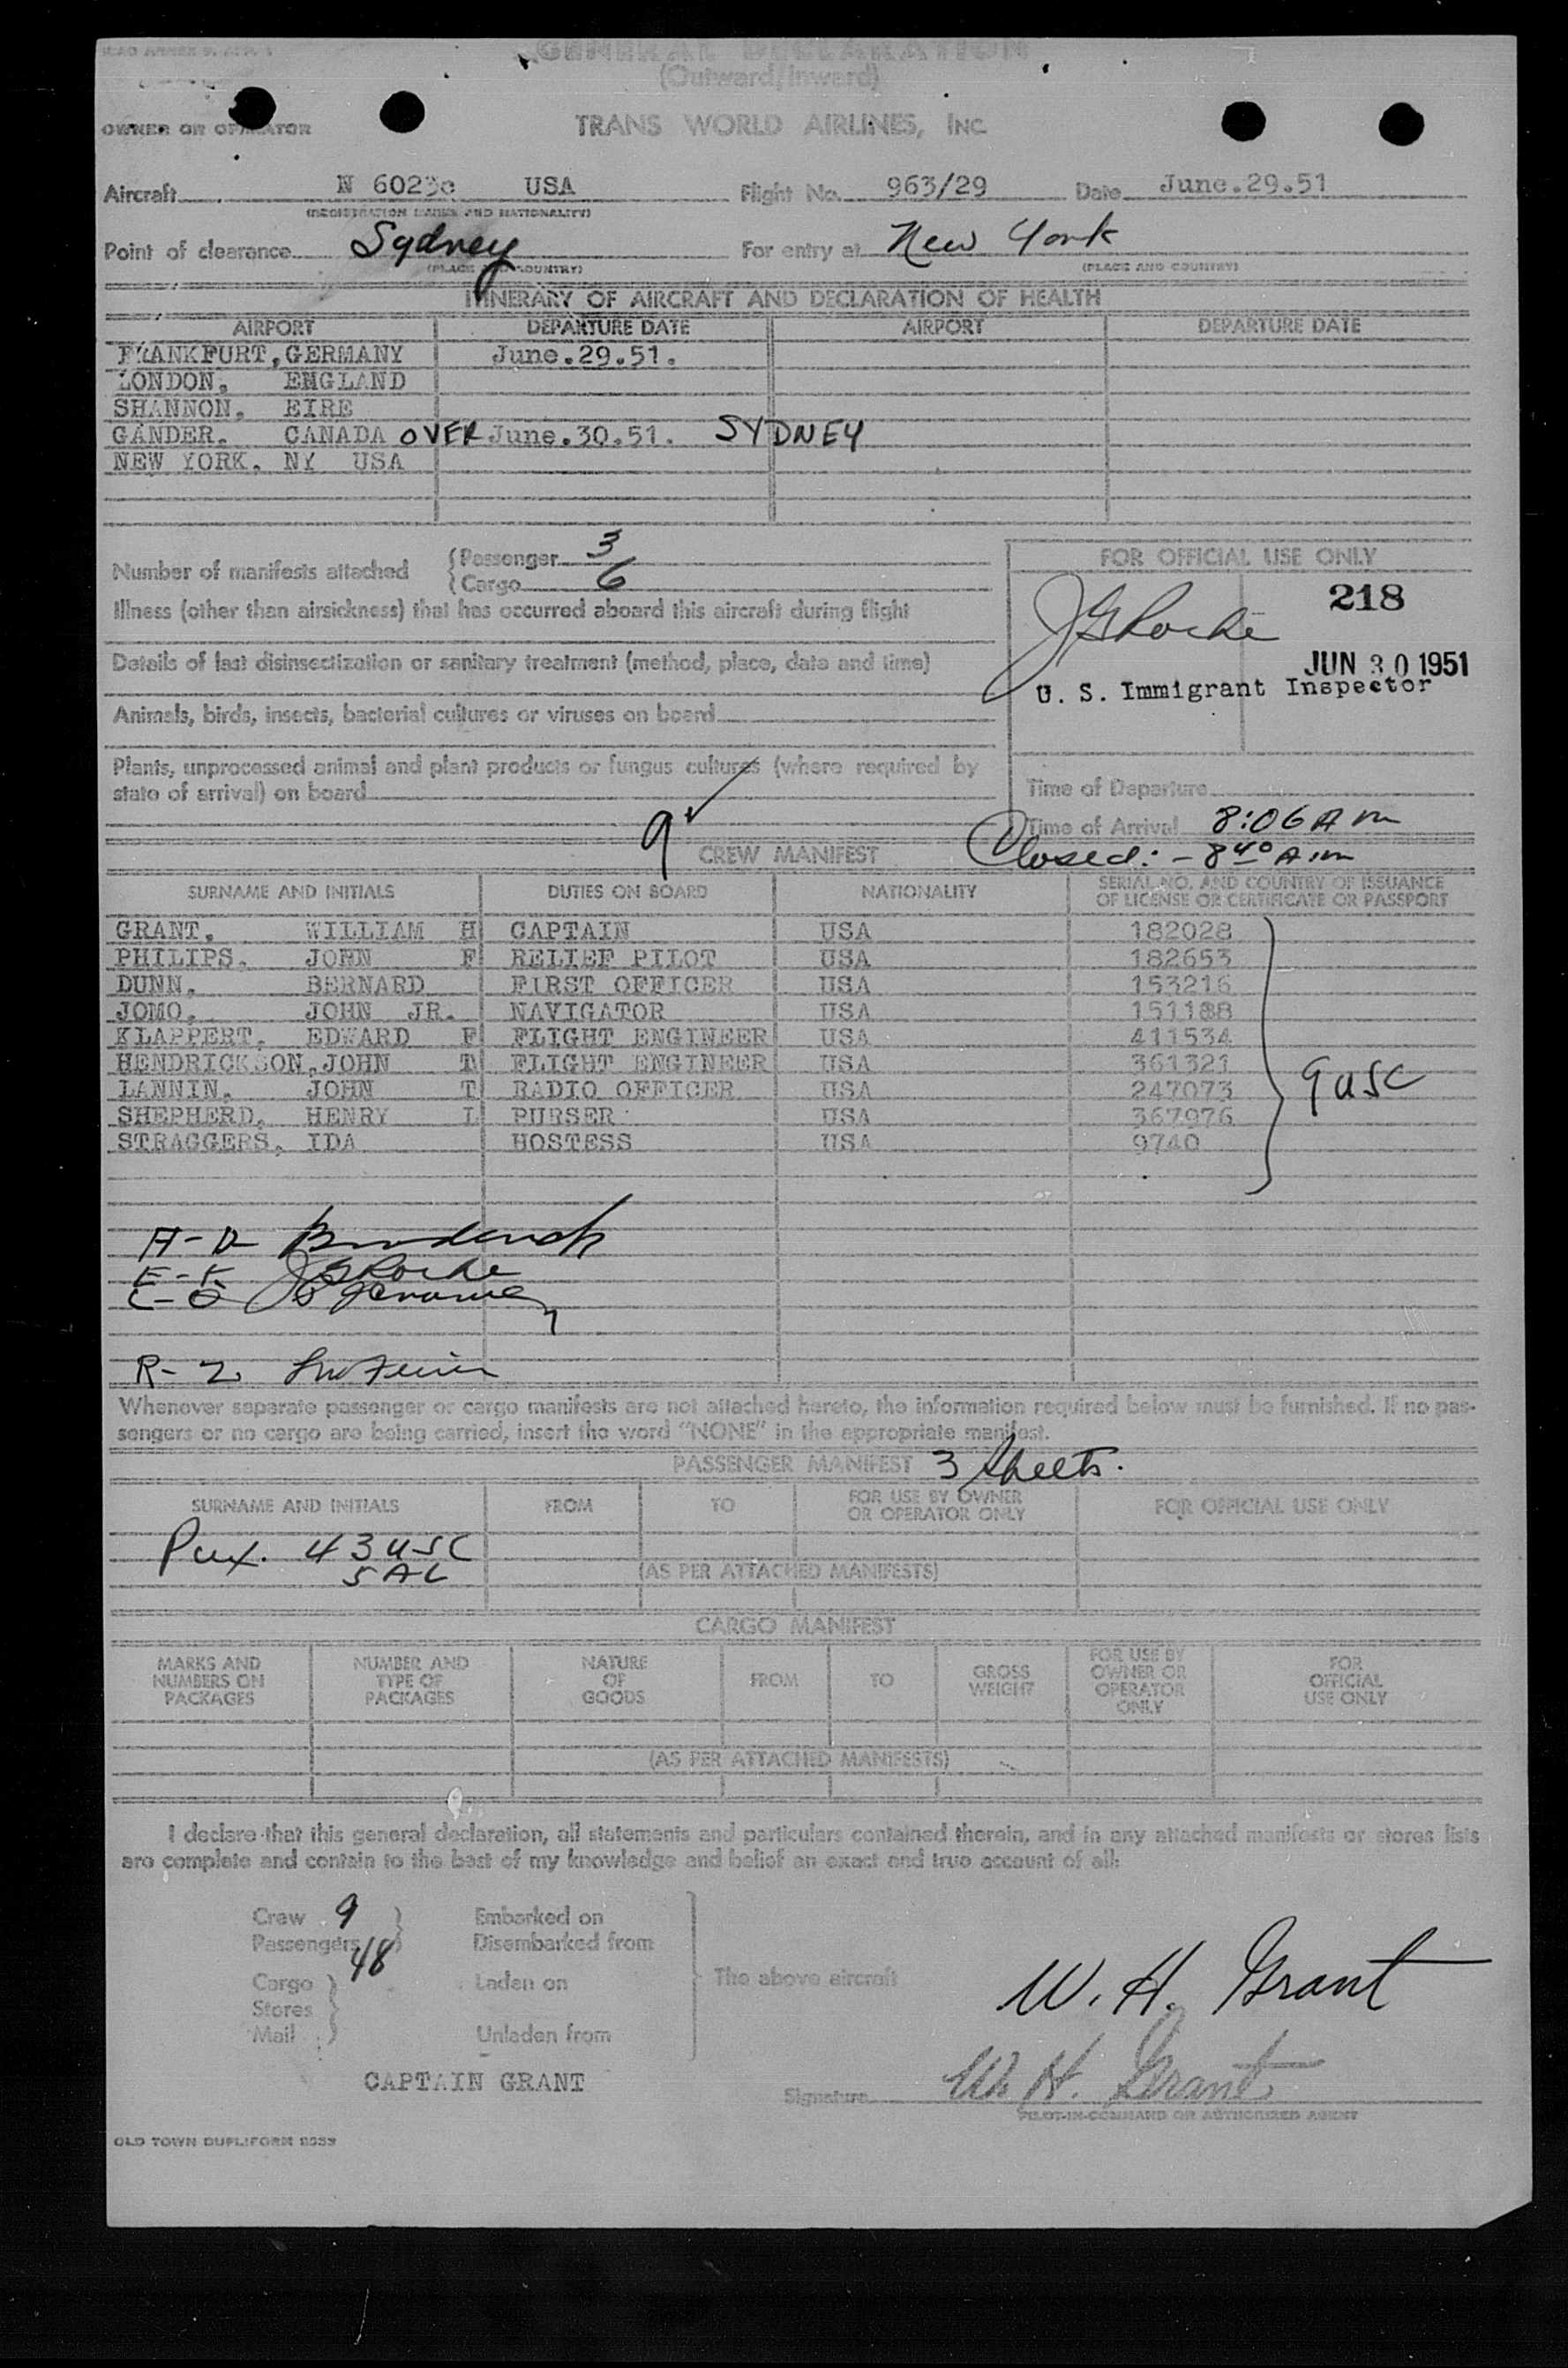 ICAO ANNEX 9, APP. 1
GENERAL DECLARATION
(Outward/Inward)
OWNER OR OPERATOR TRANS WORLD AIRLINES, INC
Aircraft N 6023c USA Flight No. 963/29 Date June.29.51
(REGISTRATION MARKS AND NATIONALITY)
Point of clearance Sydney For entry at New York
(PLACE AND COUNTRY) (PLACE AND COUNTRY)
ITINERARY OF AIRCRAFT AND DECLARATION OF HEALTH
AIRPORT DEPARTURE DATE AIRPORT DEPARTURE DATE
FRANKFURT, GERMANY June.29.51.
LONDON, ENGLAND
SHANNON, EIRE
GANDER, CANADA OVER June.30.51. SYDNEY
NEW YORK, NY USA
Number of manifests attached
Passenger 3
Cargo 6
Illness (other than airsickness) that has occurred aboard this aircraft during flight
Details of last disinsectization or sanitary treatment (method, place, date and time)
Animals, birds, insects, bacterial cultures or viruses on board
Plants, unprocessed animal and plant products or fungus cultures (where required by
state of arrival) on board
FOR OFFICIAL USE ONLY
218
J G Roche
JUN 30 1951
U. S. Immigrant Inspector
Time of Departure
Time of Arrival 8:06 A m
Closed: - 8 40 A m
9
CREW MANIFEST
SURNAME AND INITIALS DUTIES ON BOARD NATIONALITY SERIAL NO. AND COUNTRY OF ISSUANCE
OF LICENSE OR CERTIFICATE OR PASSPORT
GRANT, WILLIAM H CAPTAIN USA 182028
PHILIPS, JOHN F RELIEF PILOT USA 182653
DUNN, BERNARD FIRST OFFICER USA 153216
JOMO, JOHN JR. NAVIGATOR USA 151188
KLAPPERT, EDWARD F FLIGHT ENGINEER USA 411534
HENDRICKSON, JOHN T. FLIGHT ENGINEER USA 361321
LANNIN, JOHN T RADIO OFFICER USA 247073
SHEPHERD, HENRY L PURSER USA 367976
STRAGGERS, IDA HOSTESS USA 9740
9 USC
A-D
E-K J G Roche
L-O
R-Z
Whenever separate passenger or cargo manifests are not attached hereto, the information required below must be furnished. If no pas-
sengers or no cargo are being carried, insert the word "NONE" in the appropriate manifest.
PASSENGER MANIFEST 3 Sheets.
SURNAME AND INITIALS FROM TO FOR USE BY OWNER
OR OPERATOR ONLY FOR OFFICIAL USE ONLY
Pax. 43 USC
5 AL
(AS PER ATTACHED MANIFESTS)
CARGO MANIFEST
MARKS AND
NUMBERS ON
PACKAGES
NUMBER AND
TYPE OF
PACKAGES
NATURE
OF
GOODS
FROM
TO
GROSS
WEIGHT
FOR USE BY
OWNER OR
OPERATOR
ONLY
FOR
OFFICIAL
USE ONLY
(AS PER ATTACHED MANIFESTS)
I declare that this general declaration, all statements and particulars contained therein, and in any attached manifests or stores lists
are complete and contain to the best of my knowledge and belief an exact and true account of all:
Crew 9 Embarked on
Passengers 48 Disembarked from
Cargo Laden on
Stores
Mail Unladen from
The above aircraft
W. H. Grant
CAPTAIN GRANT
Signature W. H. Grant
PILOT-IN-COMMAND OR AUTHORIZED AGENT
OLD TOWN DUPLIFORM